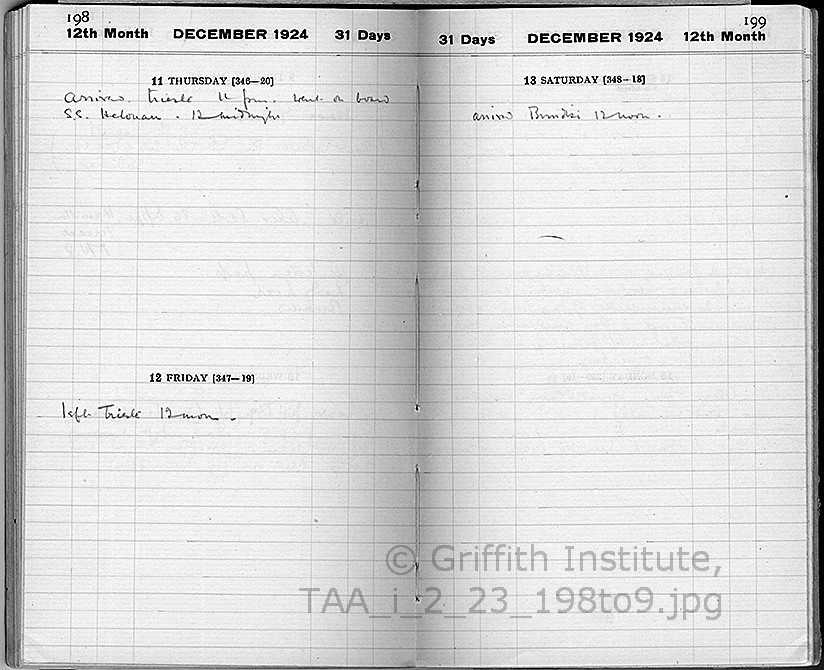 198
12th Month DECEMBER 1924 31 Days
11 THURSDAY [346—20]
arrived Trieste 11 pm. went on board
S.S. Helouan . 12 midnight
12 FRIDAY [347—19]
left Trieste 12 noon .
199
31 Days DECEMBER 1924 12th Month
13 SATURDAY [348—18]
arrived Brindisi 12 noon .
© Griffith Institute,
TAA_i_2_23_198to9.jpg